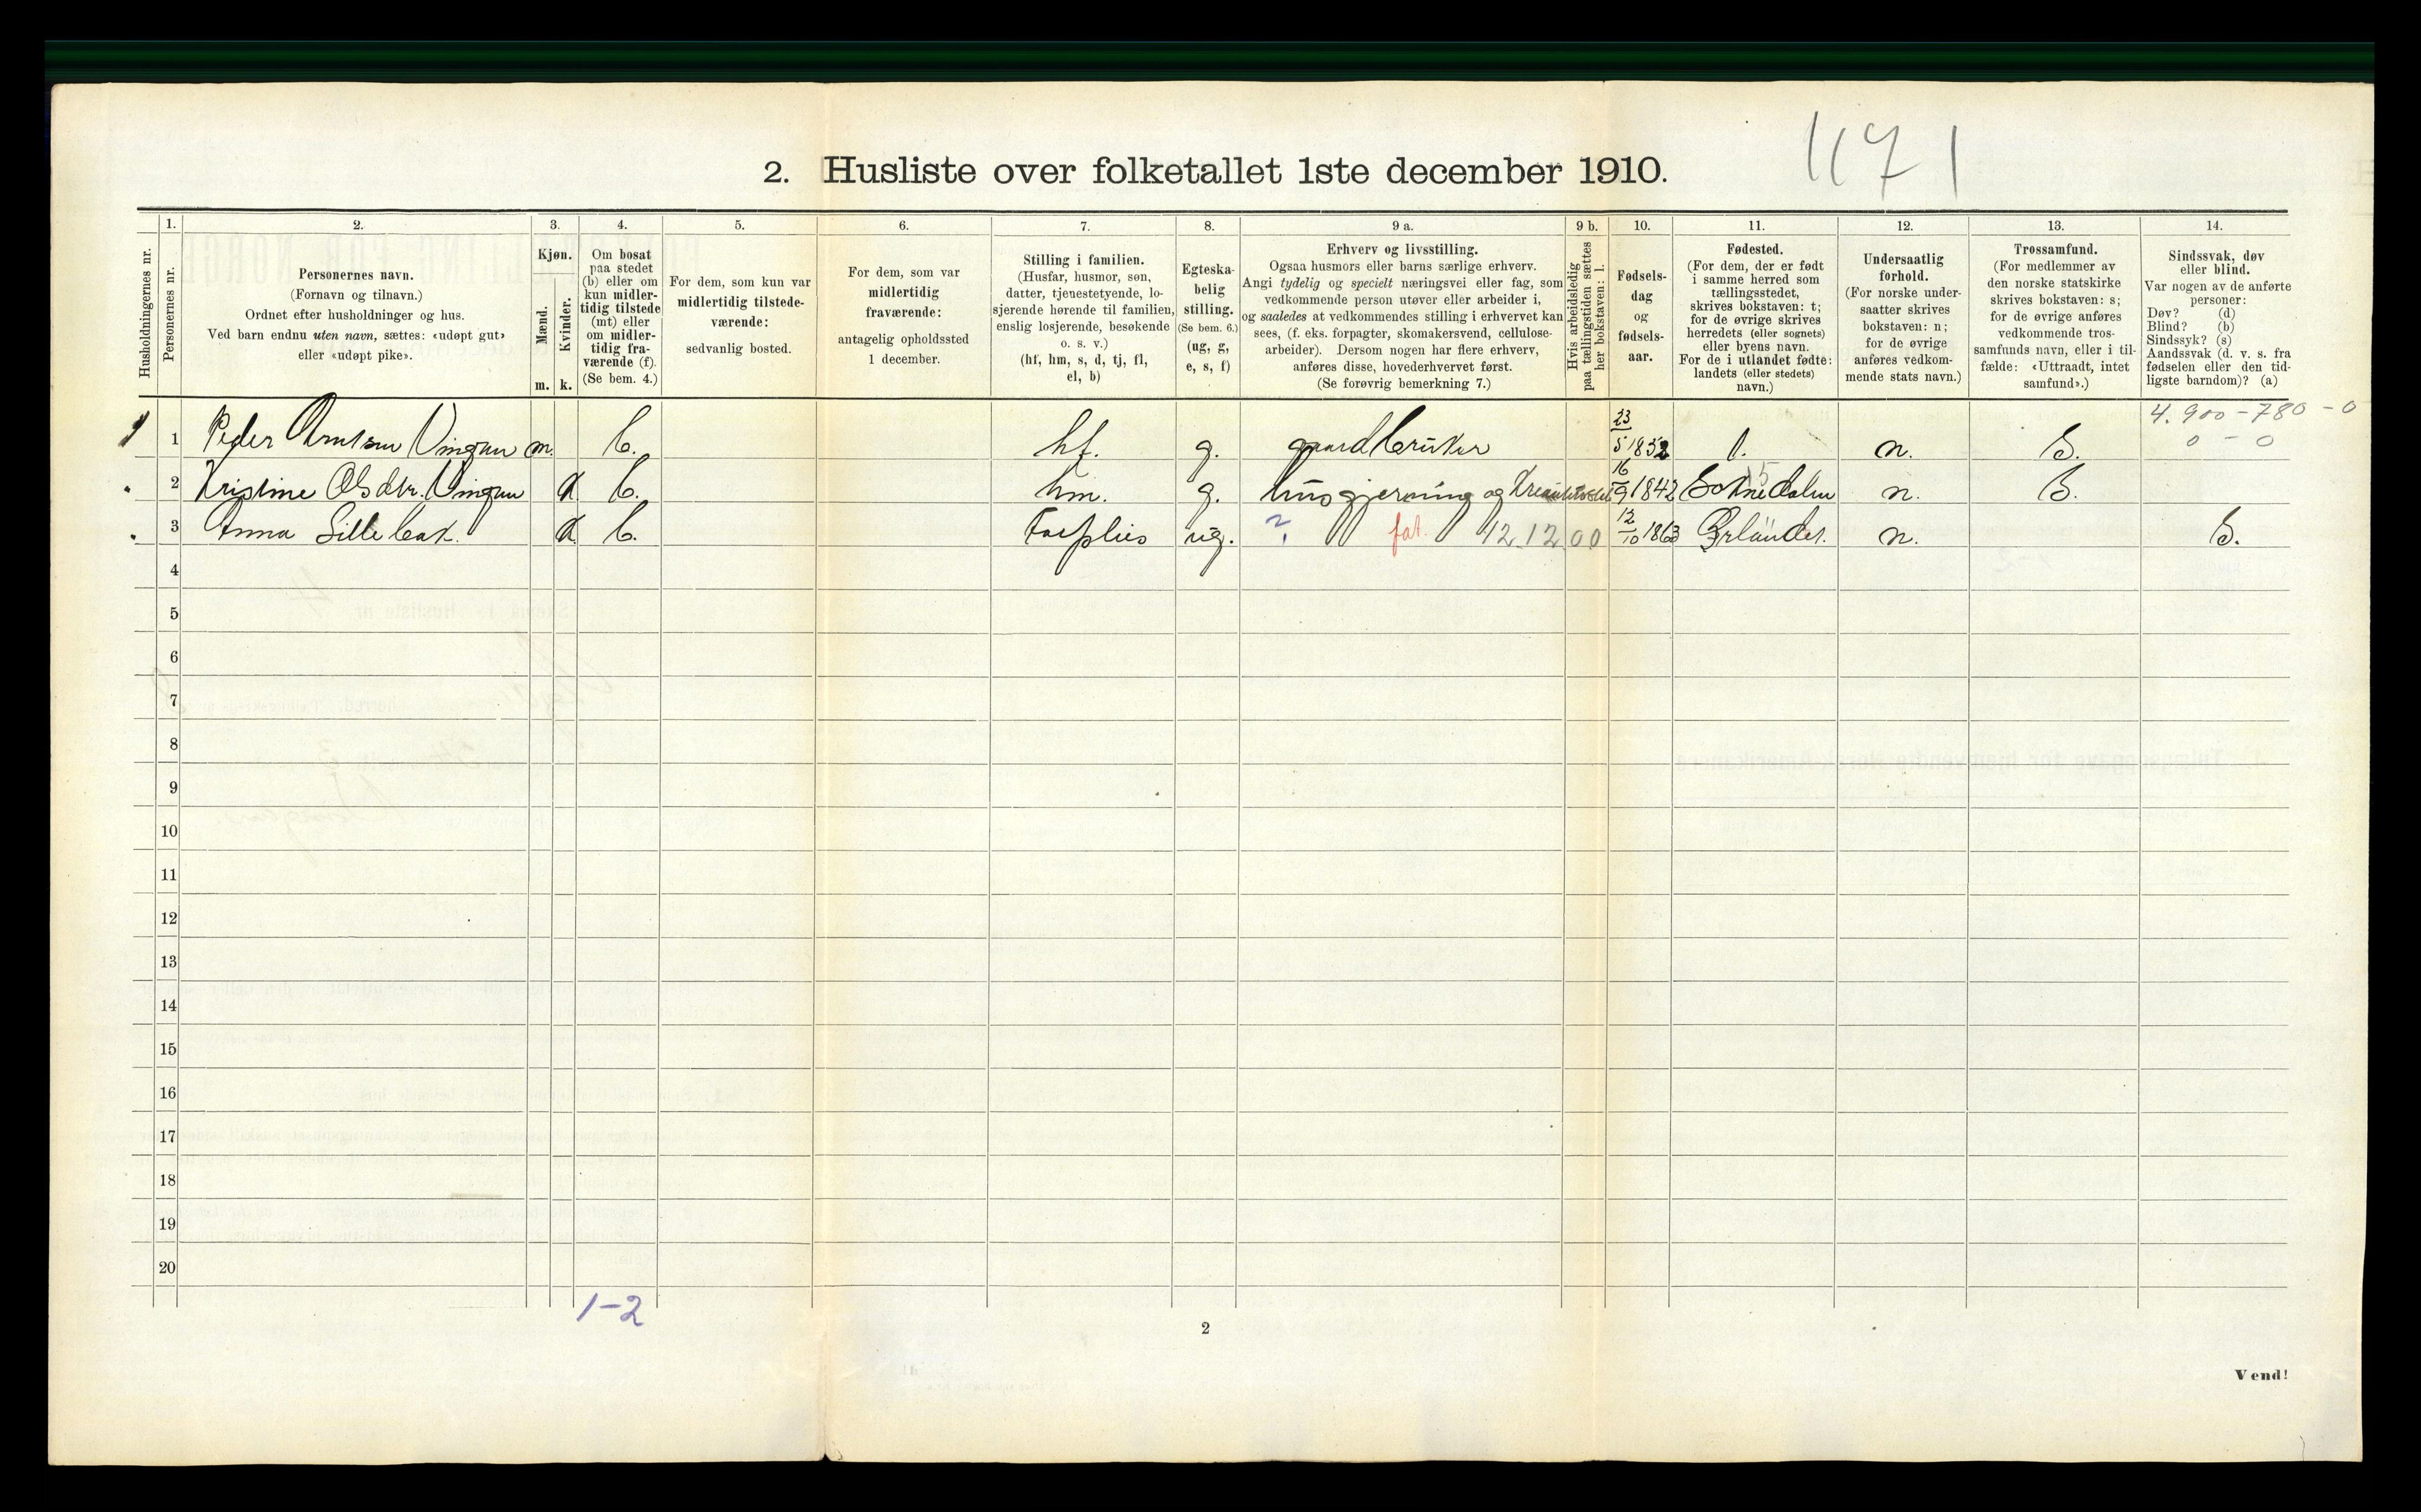 1171
2. Husliste over folketallet 1ste december 1910.
Husholdningernes nr.
1. Personernes nr.
2. Personernes navn.
(Fornavn og tilnavn.)
Ordnet efter husholdninger og hus.
Ved barn endnu uten navn, sættes: «udøpt gut»
eller «udøpt pike».
3. Kjøn.
Mænd. m.
Kvinder. k.
4. Om bosat
paa stedet
(b) eller om
kun midler-
tidig tilstede
(mt) eller
om midler-
tidig fra-
værende (f).
(Se bem. 4.)
5. For dem, som kun var
midlertidig tilstede-
værende:
sedvanlig bosted.
6. For dem, som var
midlertidig
fraværende:
antagelig opholdssted
1 december.
7. Stilling i familien.
(Husfar, husmor, søn,
datter, tjenestetyende, lo-
sjerende hørende til familien,
enslig losjerende, besøkende
o. s. v.)
(hf, hm, s, d, tj, fl,
el, b)
8. Egteska-
belig
stilling.
(Se bem. 6.)
(ug, g,
e, s, f)
9 a. Erhverv og livsstilling.
Ogsaa husmors eller barns særlige erhverv.
Angi tydelig og specielt næringsvei eller fag, som
vedkommende person utøver eller arbeider i,
og saaledes at vedkommendes stilling i erhvervet kan
sees, (f. eks. forpagter, skomakersvend, cellulose-
arbeider). Dersom nogen har flere erhverv,
anføres disse, hovederhvervet først.
(Se forøvrig bemerkning 7.)
9 b. Hvis arbeidsledig
paa tællingstiden sættes
her bokstaven: l.
10. Fødsels-
dag
og
fødsels-
aar.
11. Fødested.
(For dem, der er født
i samme herred som
tællingsstedet,
skrives bokstaven: t;
for de øvrige skrives
herredets (eller sognets)
eller byens navn.
For de i utlandet fødte:
landets (eller stedets)
navn.)
12. Undersaatlig
forhold.
(For norske under-
saatter skrives
bokstaven: n;
for de øvrige
anføres vedkom-
mende stats navn.)
13. Trossamfund.
(For medlemmer av
den norske statskirke
skrives bokstaven: s;
for de øvrige anføres
vedkommende tros-
samfunds navn, eller i til-
fælde: «Uttraadt, intet
samfund».)
14. Sindssvak, døv
eller blind.
Var nogen av de anførte
personer:
Døv? (d)
Blind? (b)
Sindssyk? (s)
Aandssvak (d. v. s. fra
fødselen eller den tid-
ligste barndom)? (a)
4.900 - 780 - 0
1 1 Peder Arntsen Vingan m. b. hf. g. gaardbruker 23/5 1852 t. n. S. 0 - 0
2 Kristine Olsdtr. Vingan k b. hm. g. husgjerning og 16/9 1842 Soknedalen n. S.
3 Anna Lillebak. k b. ug. ? fat. 12.12.00 12/10 1863 n. S.
4
5
6
7
8
9
10
11
12
13
14
15
16
17
18
19
20
1-2
2
Vend!